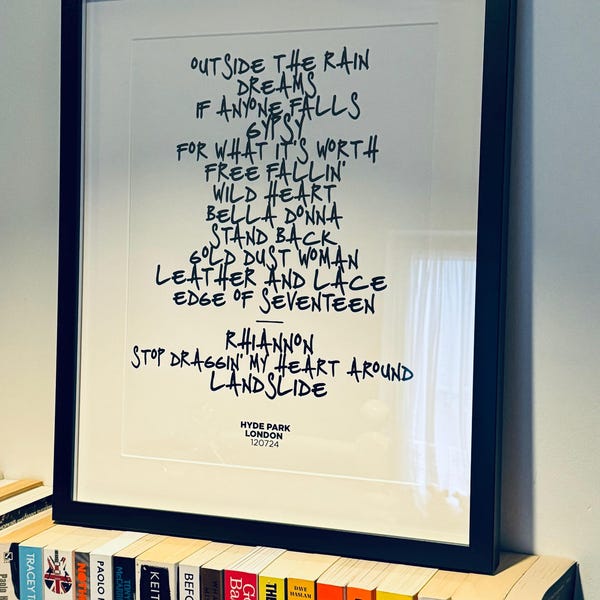 OUTSIDE THE RAIN
DREAMS
IF ANYONE FALLS
GYPSY
FOR WHAT IT'S WORTH
FREE FALLIN'
WILD HEART
BELLA DONNA
STAND BACK
GOLD DUST WOMAN
LEATHER AND LACE
EDGE OF SEVENTEEN
RHIANNON
STOP DRAGGIN' MY HEART AROUND
LANDSLIDE
HYDE PARK
LONDON
120724
TRACEY
PAOLO
KEIT
BEFO
DAVE
HASLAM